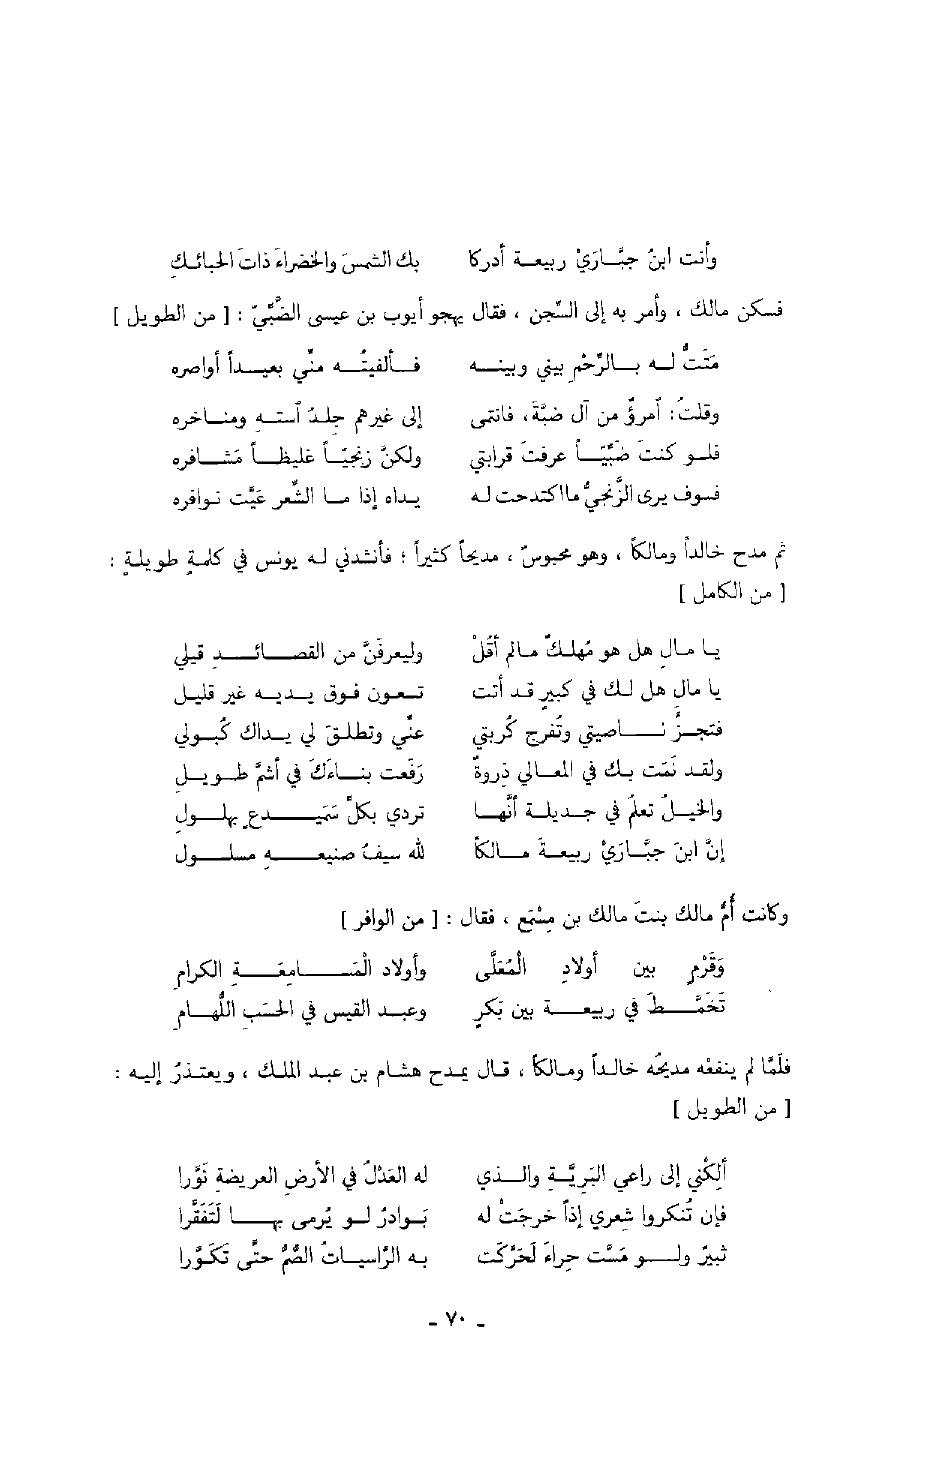 وأنت ابنُ جبَّارَيْ ربيعة أدركا بك الشمسَ والخضراءَ ذاتَ الحبائكِ
فسكن مالك ، وأمر به إلى السِّجن ، فقال يهجو أيوب بن عيسى الضَّبّيّ : [ من الطويل ]
مَتَتُّ له بالرِّحْمِ بيني وبينه فألفيتُه منّي بعيداً أواصره
وقلتُ : آمرؤٌ من آل ضبَّةَ ، فانتمى إلى غيرهم جلدُ آستهِ ومناخره
فلو كنتَ ضبّيّاً عرفتَ قرابتي ولكنَّ زنجيّاً غليظاً مشافره
فسوف يرى الزَّنجيُّ ما اكتدحت له يداه إذا ما الشِّعر عيَّت نوافره
ثم مدح خالداً ومالكاً ، وهو محبوسٌ ، مديحاً كثيراً ؛ فأنشدني له يونس في كلمةٍ طويلةٍ :
[ من الكامل ]
يا مالِ هل هو مُهلكٌ مالم أقُلْ وليعرفَنَّ من القصائدِ قيلي
يا مال هل لك في كبيرٍ قد أتت تسعون فوق يديه غير قليل
فتجزُّ ناصيتي وتُفرج كُربتي عنّي وتطلقَ لي يداك كُبولي
ولقد نَمَت بك في المعالي ذروةٌ رَفَعت بناءَكَ في أشمَّ طويل
والخيلُ تعلمُ في جديلة أنَّها تردي بكلِّ سَمَيدعٍ بهلولِ
إنَّ ابنَ جبَّارَيْ ربيعةَ مالكاً لله سيفُ صنيعةٍ مسلول
وكانت أُمُّ مالك بنتَ مالك بن مِسْمَع ، فقال : [ من الوافر ]
وَقَرْمٍ بين أولادِ المُعَلَّى وأولاد المَسامعَةِ الكرامِ
تَخَمَّطَ في ربيعةَ بين بَكرٍ وعبد القيس في الحَسَبِ اللُّهامِ
فلَمَّا لم ينفعْه مديحُه خالداً ومالكاً ، قال يمدح هشام بن عبد الملك ، ويعتذرُ إليه :
[ من الطويل ]
ألِكْني إلى راعي البَريَّةِ والذي له العَدْلُ في الأرضِ العريضةِ نَوَّرا
فإن تُنكروا شِعري إذاً خرجَتْ له بَوادرُ لو يُرمى بها لَتَفَقَّرا
ثبيرٌ ولو مَسَّت حِراءَ لَحَرَّكت به الرَّاسياتُ الصُّمُّ حتَّى تَكَوَّرا
ـ ٧٠ ـ